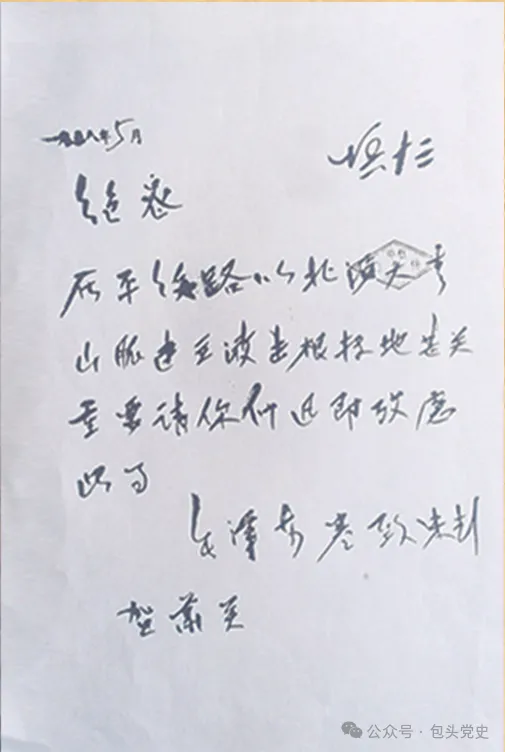 一九三八年5月
绝密
在平绥路以北沿大青
山脉建立游击根据地甚关
重要请你们迅即考虑
此事
毛泽东 寒 致朱彭
贺萧关
公众号·包头党史